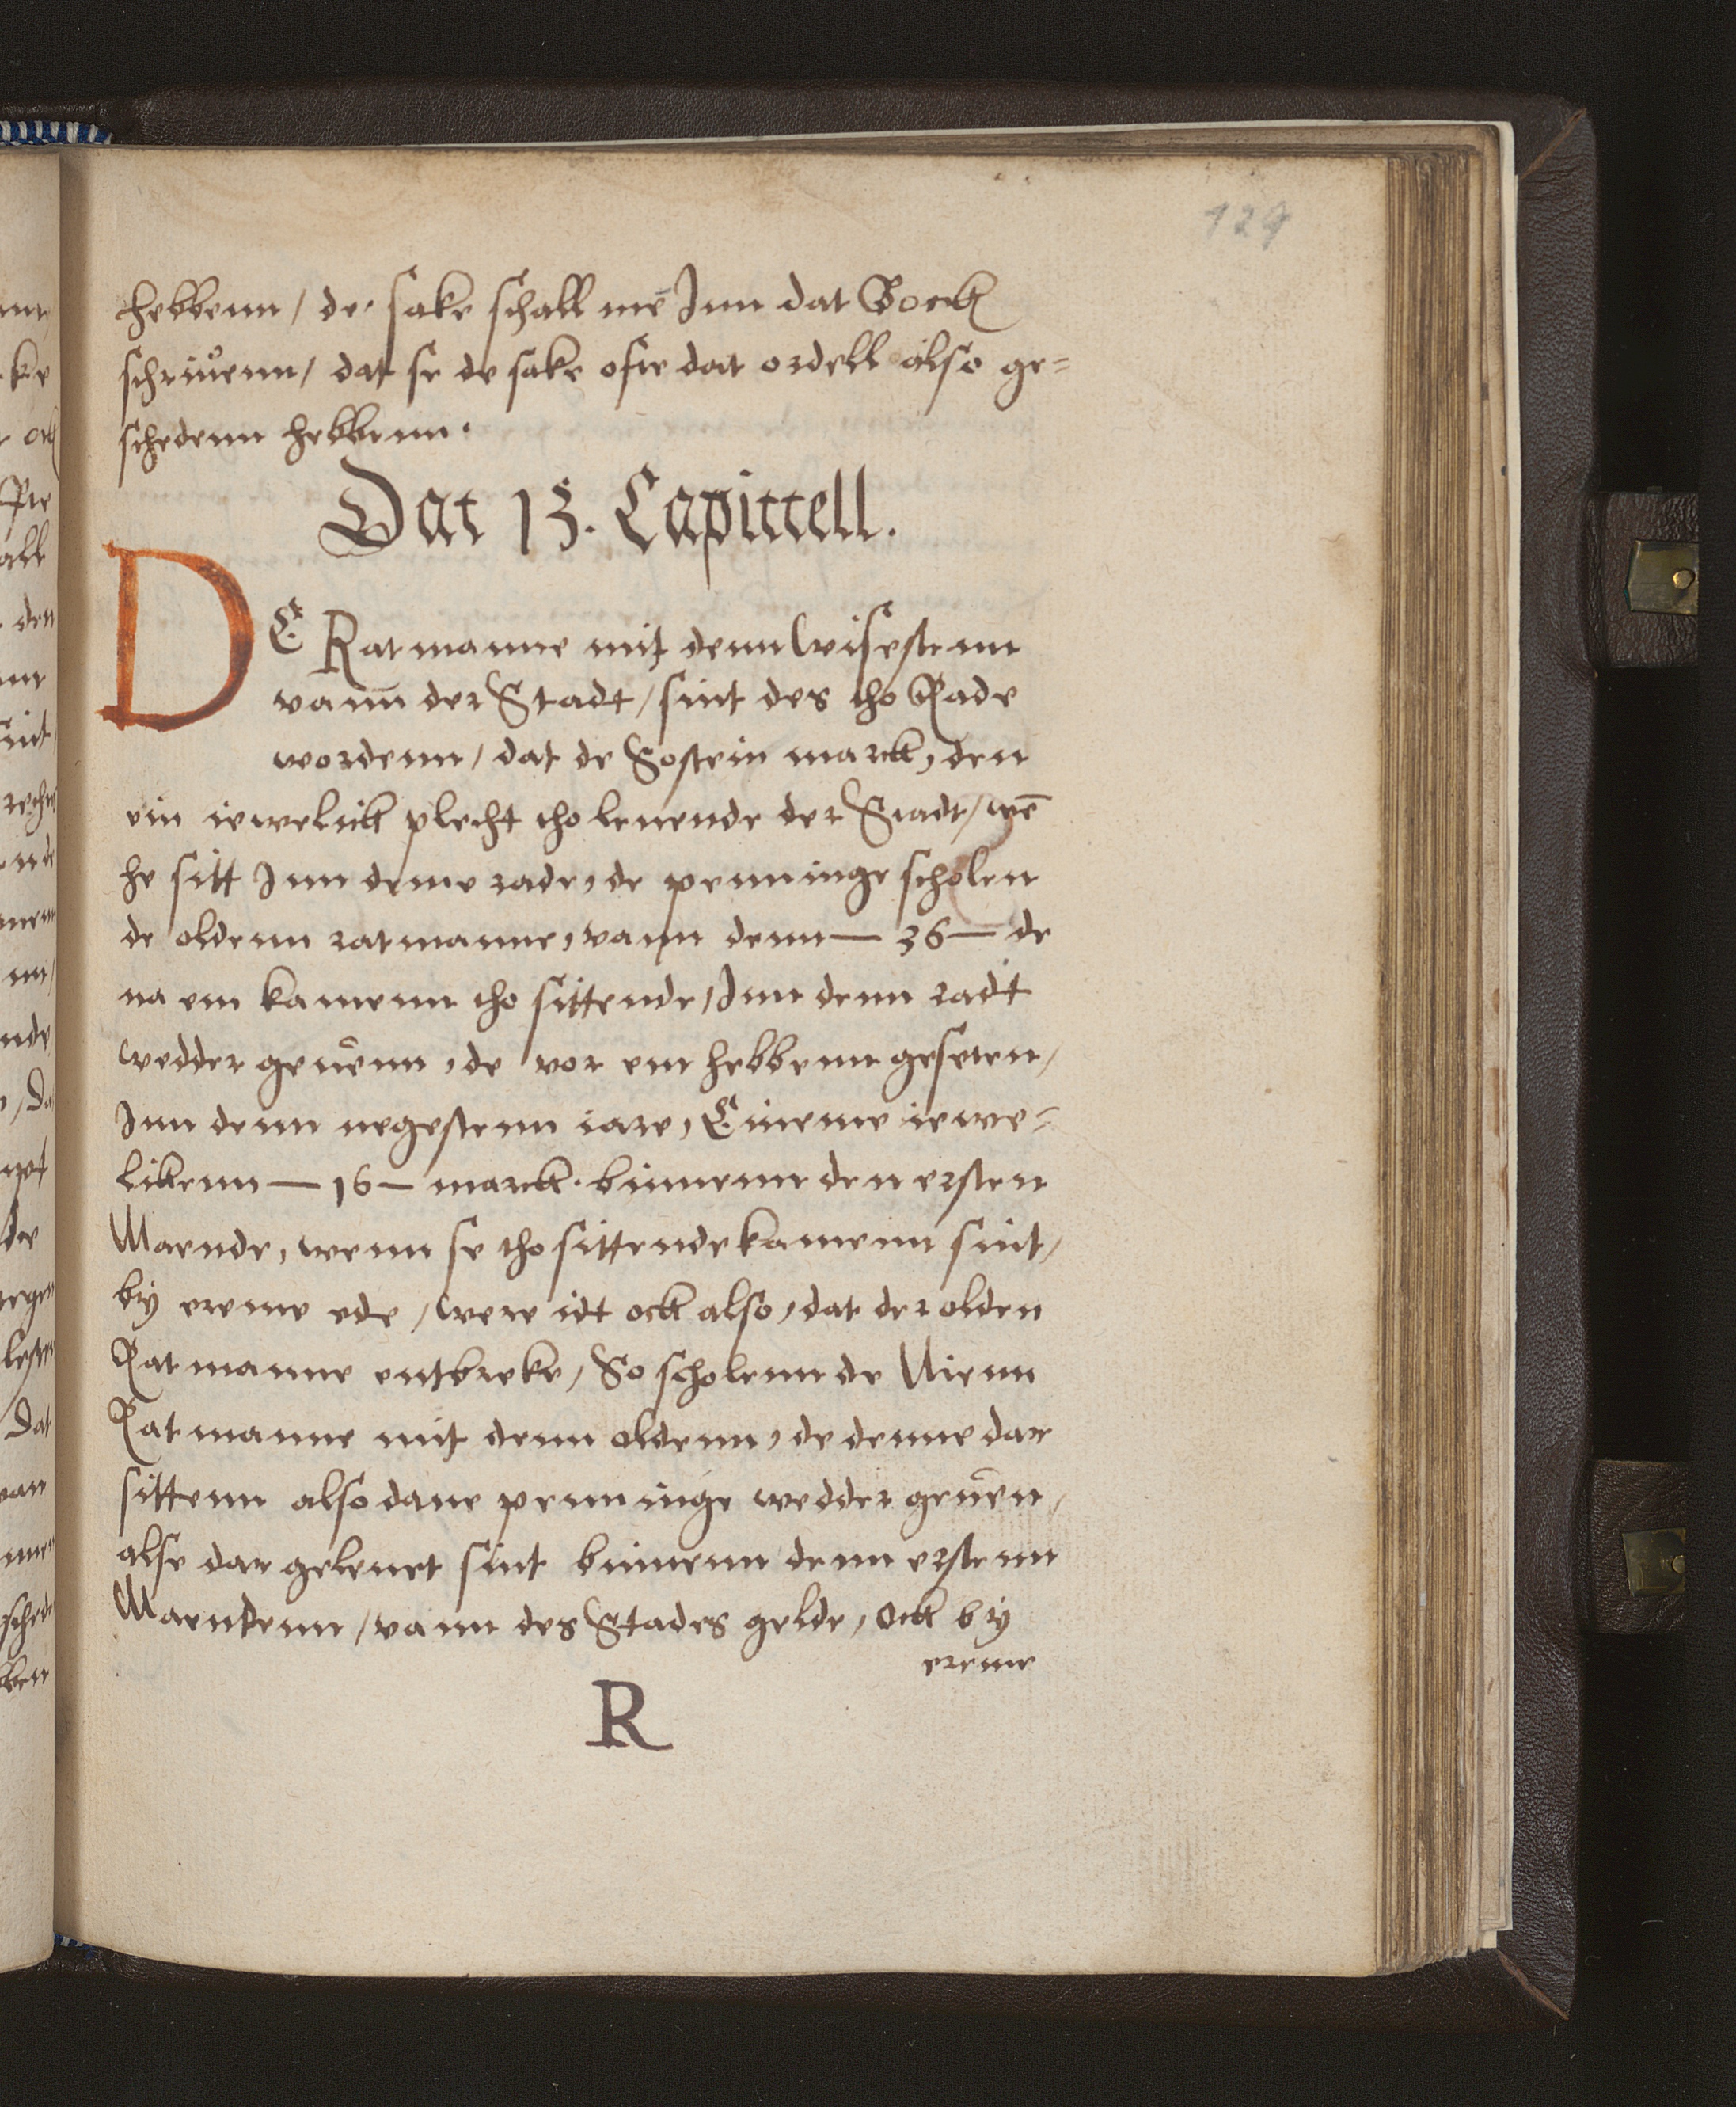 129
hebbenn / de sake schall mē Inn dat Bock
schriuenn / dat se de sake ofte dat ordell also ge=
schedenn hebbenn.
Dat 13. Capittell.
DE Ratmanne mit denn Wisestenn
vann der Stadt / sint des tho Rade
wordenn / dat de Sostein marck, den
ein iewelick plecht tho lenende der Stadt / wē
he sitt Inn deme rade, de penninge scholen
de oldenn ratmanne, vann denn — 36 — de
na em kamenn tho sittende / Inn denn radt
wedder geuenn, de vor em hebbenn geseten /
Inn denn negestenn iare, Eineme iewe=
likenn — 16 — marck. binnenn den ersten
Maende, wenn se tho sittende kamenn sint /
by ereme ede / Were idt ock also, dat der olden
Ratmanne entbreke / So scholenn de Nienn
Ratmanne mit denn oldenn, de denne dar
sittenn alsodane penninge wedder geuen /
alse dar gelenet sint binnenn denn erstenn
Maentenn / vann des Stades gelde, Ock by
ereme
R